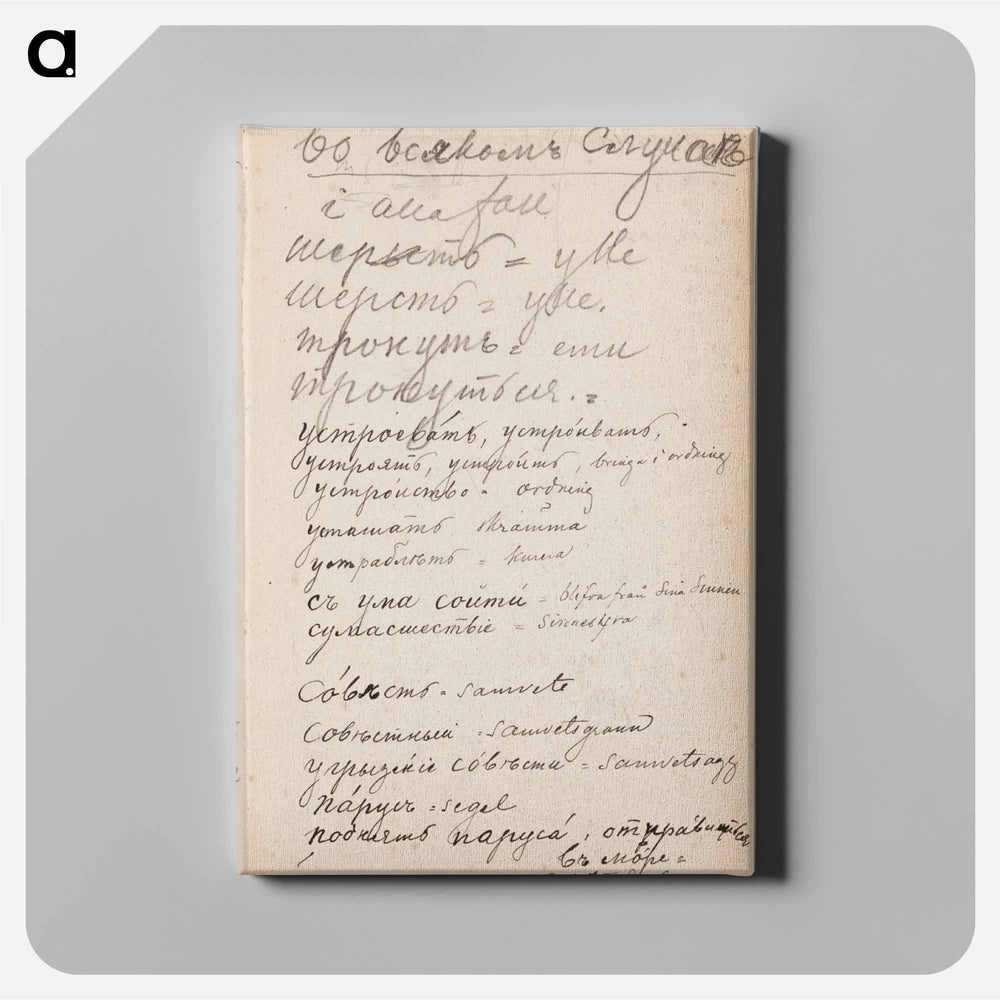 a.
Во всякомъ случаѣ
i alla fall
шерсть = ylle
шерсть = ylle.
тронуть =
тронуться. =
устроевáть, устрóивать,
устроять, устрóить, bringa i ordning
устрóиство = ordning
усташать
устраблять = kurera
съ ума сойти = från sina sinnen
сумасшествiе =
Сóвѣсть = samvete
Совѣстный = samvetsgrann
угрызéнiе сóвѣсти =
пáрусъ = segel
поднять парусá, отправиться
въ мóре =